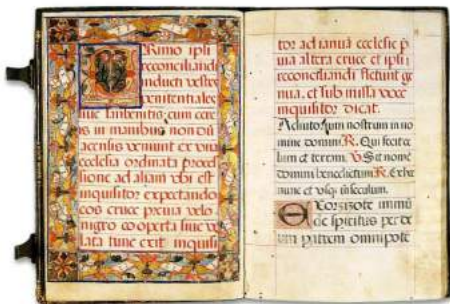 Rimo ipsi
reconciliandi
induti vestes
penitentiales
siue sanbenitis, cum cere
is in manibus non dū
accensis veniunt ex una
ecclesia ordinata proces
sione ad aliam vbi est
inquisitor expectando
eos cruce preuia velo
nigro cooperta siue ve
lata tunc exit inquisi
tor ad ianuā ecclesie p̄
uia altera cruce et ipsi
reconciliandi flectunt ge
nua, et sub missa voce
inquisitor dicat.
Adiutorium nostrum in no
mine domini. R. Qui fecit ce
lum et terram. V. Sit nomē
domini benedictum. R. Ex hoc
nunc et vsq; in seculum.
Exorcizote immū
de spiritus per de
um patrem omnipotē